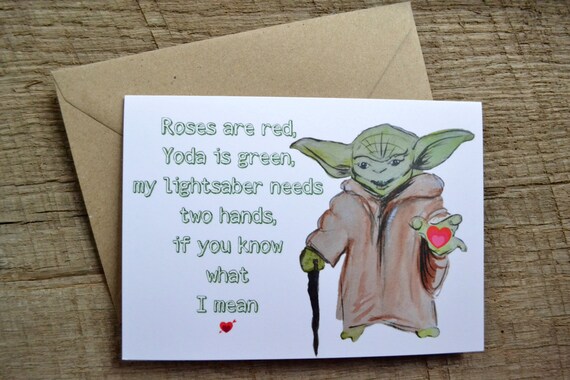 Roses are red,
Yoda is green,
my lightsaber needs
two hands,
if you know
what
I mean